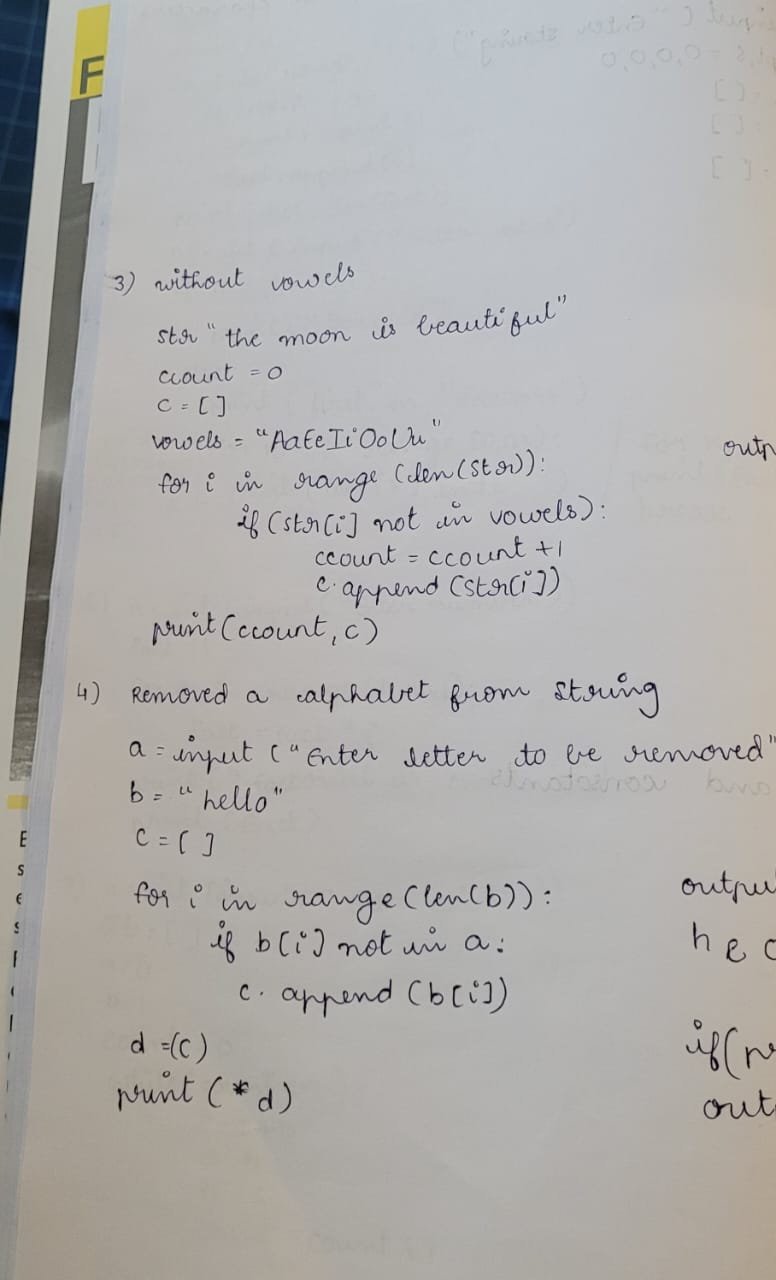 F
3) without vowels
str "the moon is beautiful"
ccount = 0
c = [ ]
vowels = "AaEeIiOoUu"
for i in range (len(str)):
if (str[i] not in vowels):
ccount = ccount +1
c.append (str[i])
print(ccount, c)
4) Removed a alphabet from string
a = input ("Enter letter to be removed"
b = "hello"
c = [ ]
for i in range(len(b)):
if b[i] not in a:
c. append (b[i])
d =(c)
print (*d)
outp
outpu
h e o
if(n
out